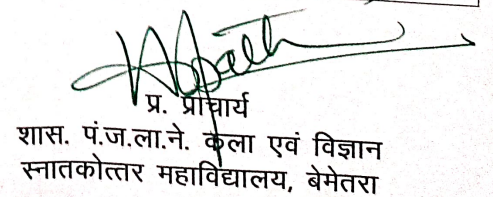 प्र. प्राचार्य
शास. पं.ज.ला.ने. कला एवं विज्ञान
स्नातकोत्तर महाविद्यालय, बेमेतरा